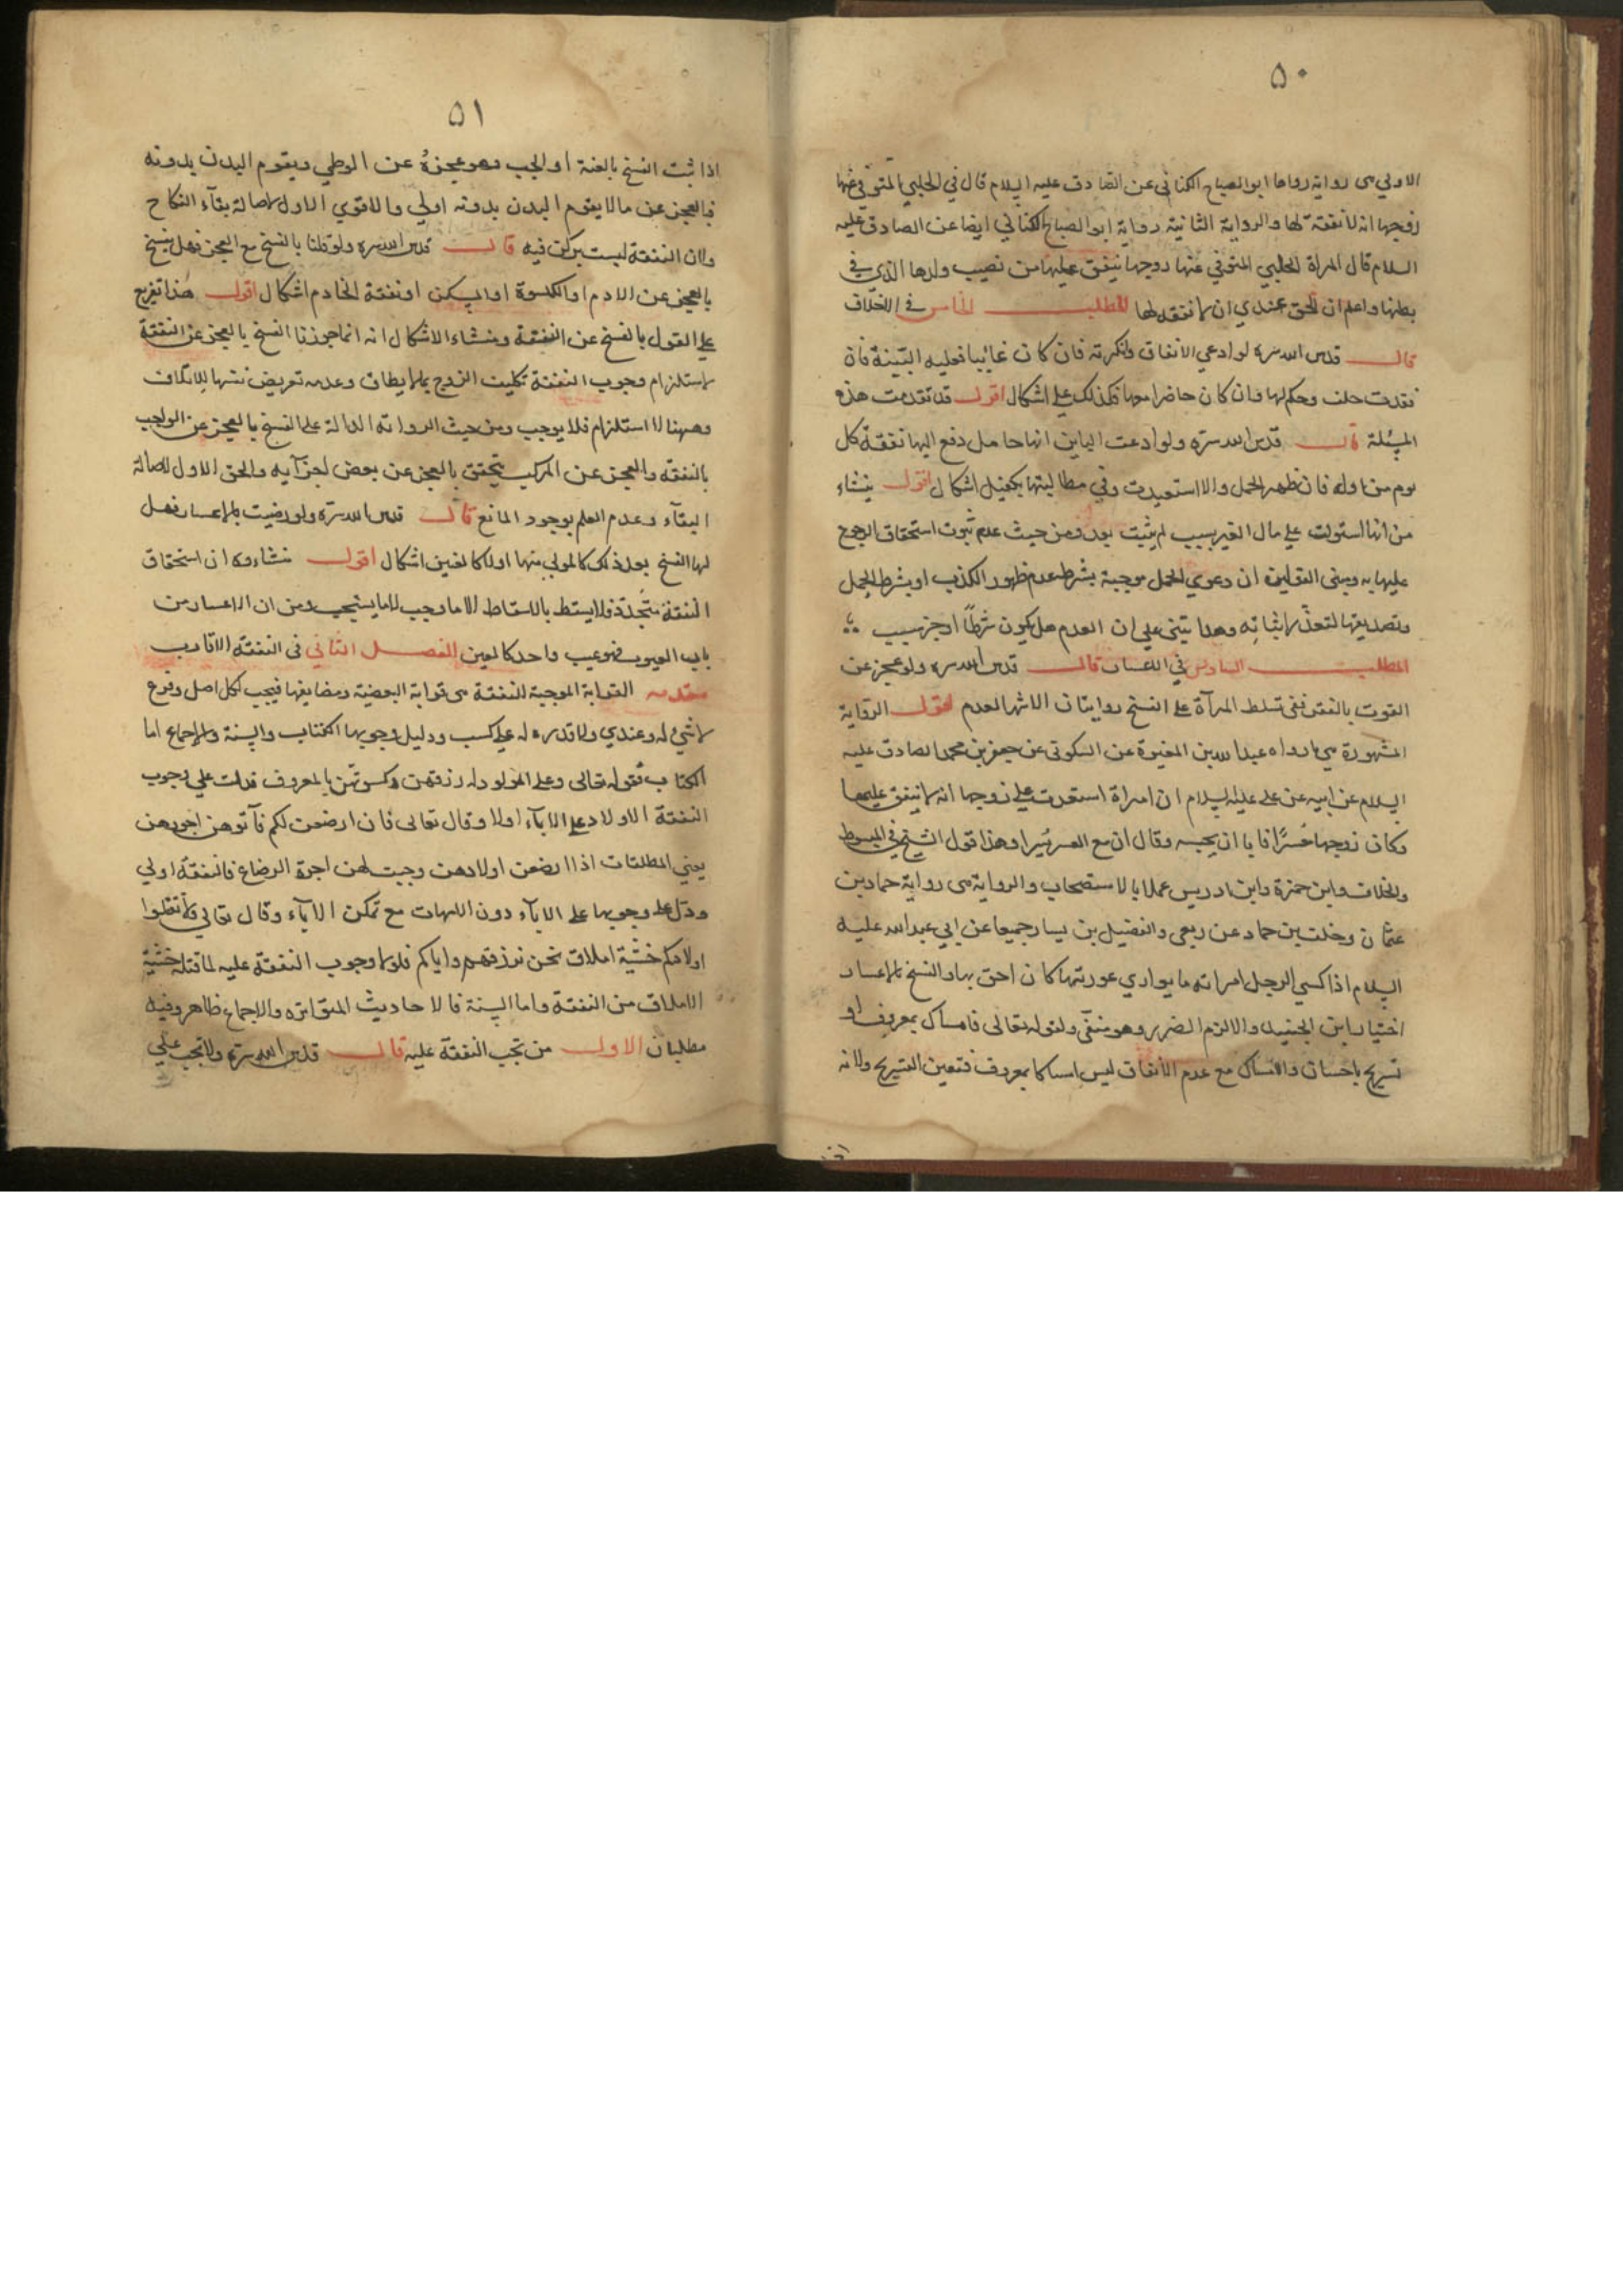 ٥٠
الاولي هى رواية رواها ابو الصباح الكنانى عن الصادق عليه السلام قال في الحبلي المتوفى عنها
زوجها انه لا نفقة لها والرواية الثانية رواية ابو الصباح الكناني ايضا عن الصادق عليه
السلام قال المراة الحبلي المتوفي عنها زوجها ينفق عليها من نصيب ولدها الذي في
بطنها واعلم ان الحق عندي ان لا نفقه لها المطلب الخامس في الاختلاف
قال قدس الله سره لو ادعي الانفاق وانكرته فان كان غائبا فعليه البينة فان
فقدت حلفت وحكم لها وان كان حاضرا معها فكذلك علي اشكال اقول قد تقدمت هذه
المسئلة قال قدس الله سره ولو ادعت الباين انها حامل دفع اليها نفقة كل
يوم من اوله فان ظهر الحمل والا استعيدت وفي مطالبتها بكفيل اشكال اقول ينشاء
من انها استولت على مال الغير بسبب لم يثبت بعد ومن حيث عدم ثبوت استحقاق الرجوع
عليها به ومبنى القولين ان دعوي الحمل موجبة بشرط عدم ظهور الكذب او بشرط الحمل
وتصديقها لتعذر اثباته وهذا يبنى علي ان العدم هل يكون شرطا او جزء سبب
المطلب السادس في الاعسار قال قدس الله سره ولو عجز عن
القوت بالفقر ففي تسلط المرآة على الفسخ روايتان الاشهر العدم اقول الرواية
المشهورة هي ما رواه عبد الله بن المغيرة عن السكونى عن جعفر بن محمد الصادق عليه
السلام عن ابيه عن على عليه السلام ان امراة استعدت على زوجها انه لا ينفق عليها
وكان زوجها معسرا فابا ان يحبسه وقال ان مع العسر يسرا وهذا قول الشيخ في المبسوط
والخلاف وابن حمزة وابن ادريس عملا بالاستصحاب والرواية هى رواية حماد بن
عثمان وخلف بن حماد عن ربعى والفضيل بن يسار جميعا عن ابي عبد الله عليه
السلام اذا كسي الرجل امراته ما يواري عورتها كان احق بها والفسخ بالاعسار
اختيار ابن الجنيد والا لزم الضرر وهو منفى ولقوله تعالى فامساك بمعروف او
تسريح باحسان والامساك مع عدم الانفاق ليس امساكا بمعروف فتعين التسريح ولانه
اذا
٥١
اذا ثبت الفسخ بالعنة او الجب وهو عجزه عن الوطي ويقوم البدن بدونه
فبالعجز عن ما لا يقوم البدن بدونه اولي والاقوي الاول لاصالة بقاء النكاح
ولان النفقة ليست بركن فيه قال قدس الله سره ولو قلنا بالفسخ مع العجز فهل يفسخ
بالعجز عن الادم او الكسوة او المسكن او نفقة الخادم اشكال اقول هذا تفريع
علي القول بالفسخ عن النفقة ومنشاء الاشكال انه انما جوزنا الفسخ بالعجز عن النفقة
لاستلزام وجوب النفقة تكليف الزوج بما لا يطاق وعدمه تعريض نفسها للاتلاف
وههنا لا استلزام فلا يوجب ومن حيث الرواية الدالة على الفسخ بالعجز عن الواجب
بالنفقه والعجز عن المركب يتحقق بالعجز عن بعض اجزآيه والحق الاول لاصالة
البقآء وعدم العلم بوجود المانع قال قدس الله سره ولو رضيت بالاعسار فهل
لها الفسخ بعد ذلك كالمولي منها اولا كالعنين اشكال اقول منشاءوه ان استحقاق
النفقة متجدد فلا يسقط بالاسقاط الا ما وجب لا ما يستجب ومن ان الاعسار من
باب العيوب فهو عيب واحد كالعنين الفصل الثاني فى النفقة الاقارب
مقدمه القرابة الموجبة للنفقة هى قرابة البعضية ومضايفها فيجب لكل اصل وفرع
لا شي له وعندي ولا قدره له على كسب ودليل وجوبها الكتاب والسنة والاجماع اما
الكتاب فقوله تعالى وعلى المولود له رزقهن وكسوتهن بالمعروف فدلت علي وجوب
النفقة الاولاد على الابآء اولا وقال تعالى فان ارضعن لكم فآتوهن اجورهن
يعني المطلقات اذا ارضعن اولادهن وجبت لهن اجرة الرضاع فالنفقة اولي
ودل على وجوبها على الابآء دون الامهات مع تمكن الابآء وقال تعالي ولا تقتلوا
اولادكم خشية املاق نحن نرزقهم واياكم فلولا وجوب النفقة عليه لما قتله خشية
الاملاق من النفقة واما السنة فالاحاديث المتواتره والاجماع ظاهر وفيه
مطلبان الاول من تجب النفقة عليه قال قدس الله سره ولا تجب علي